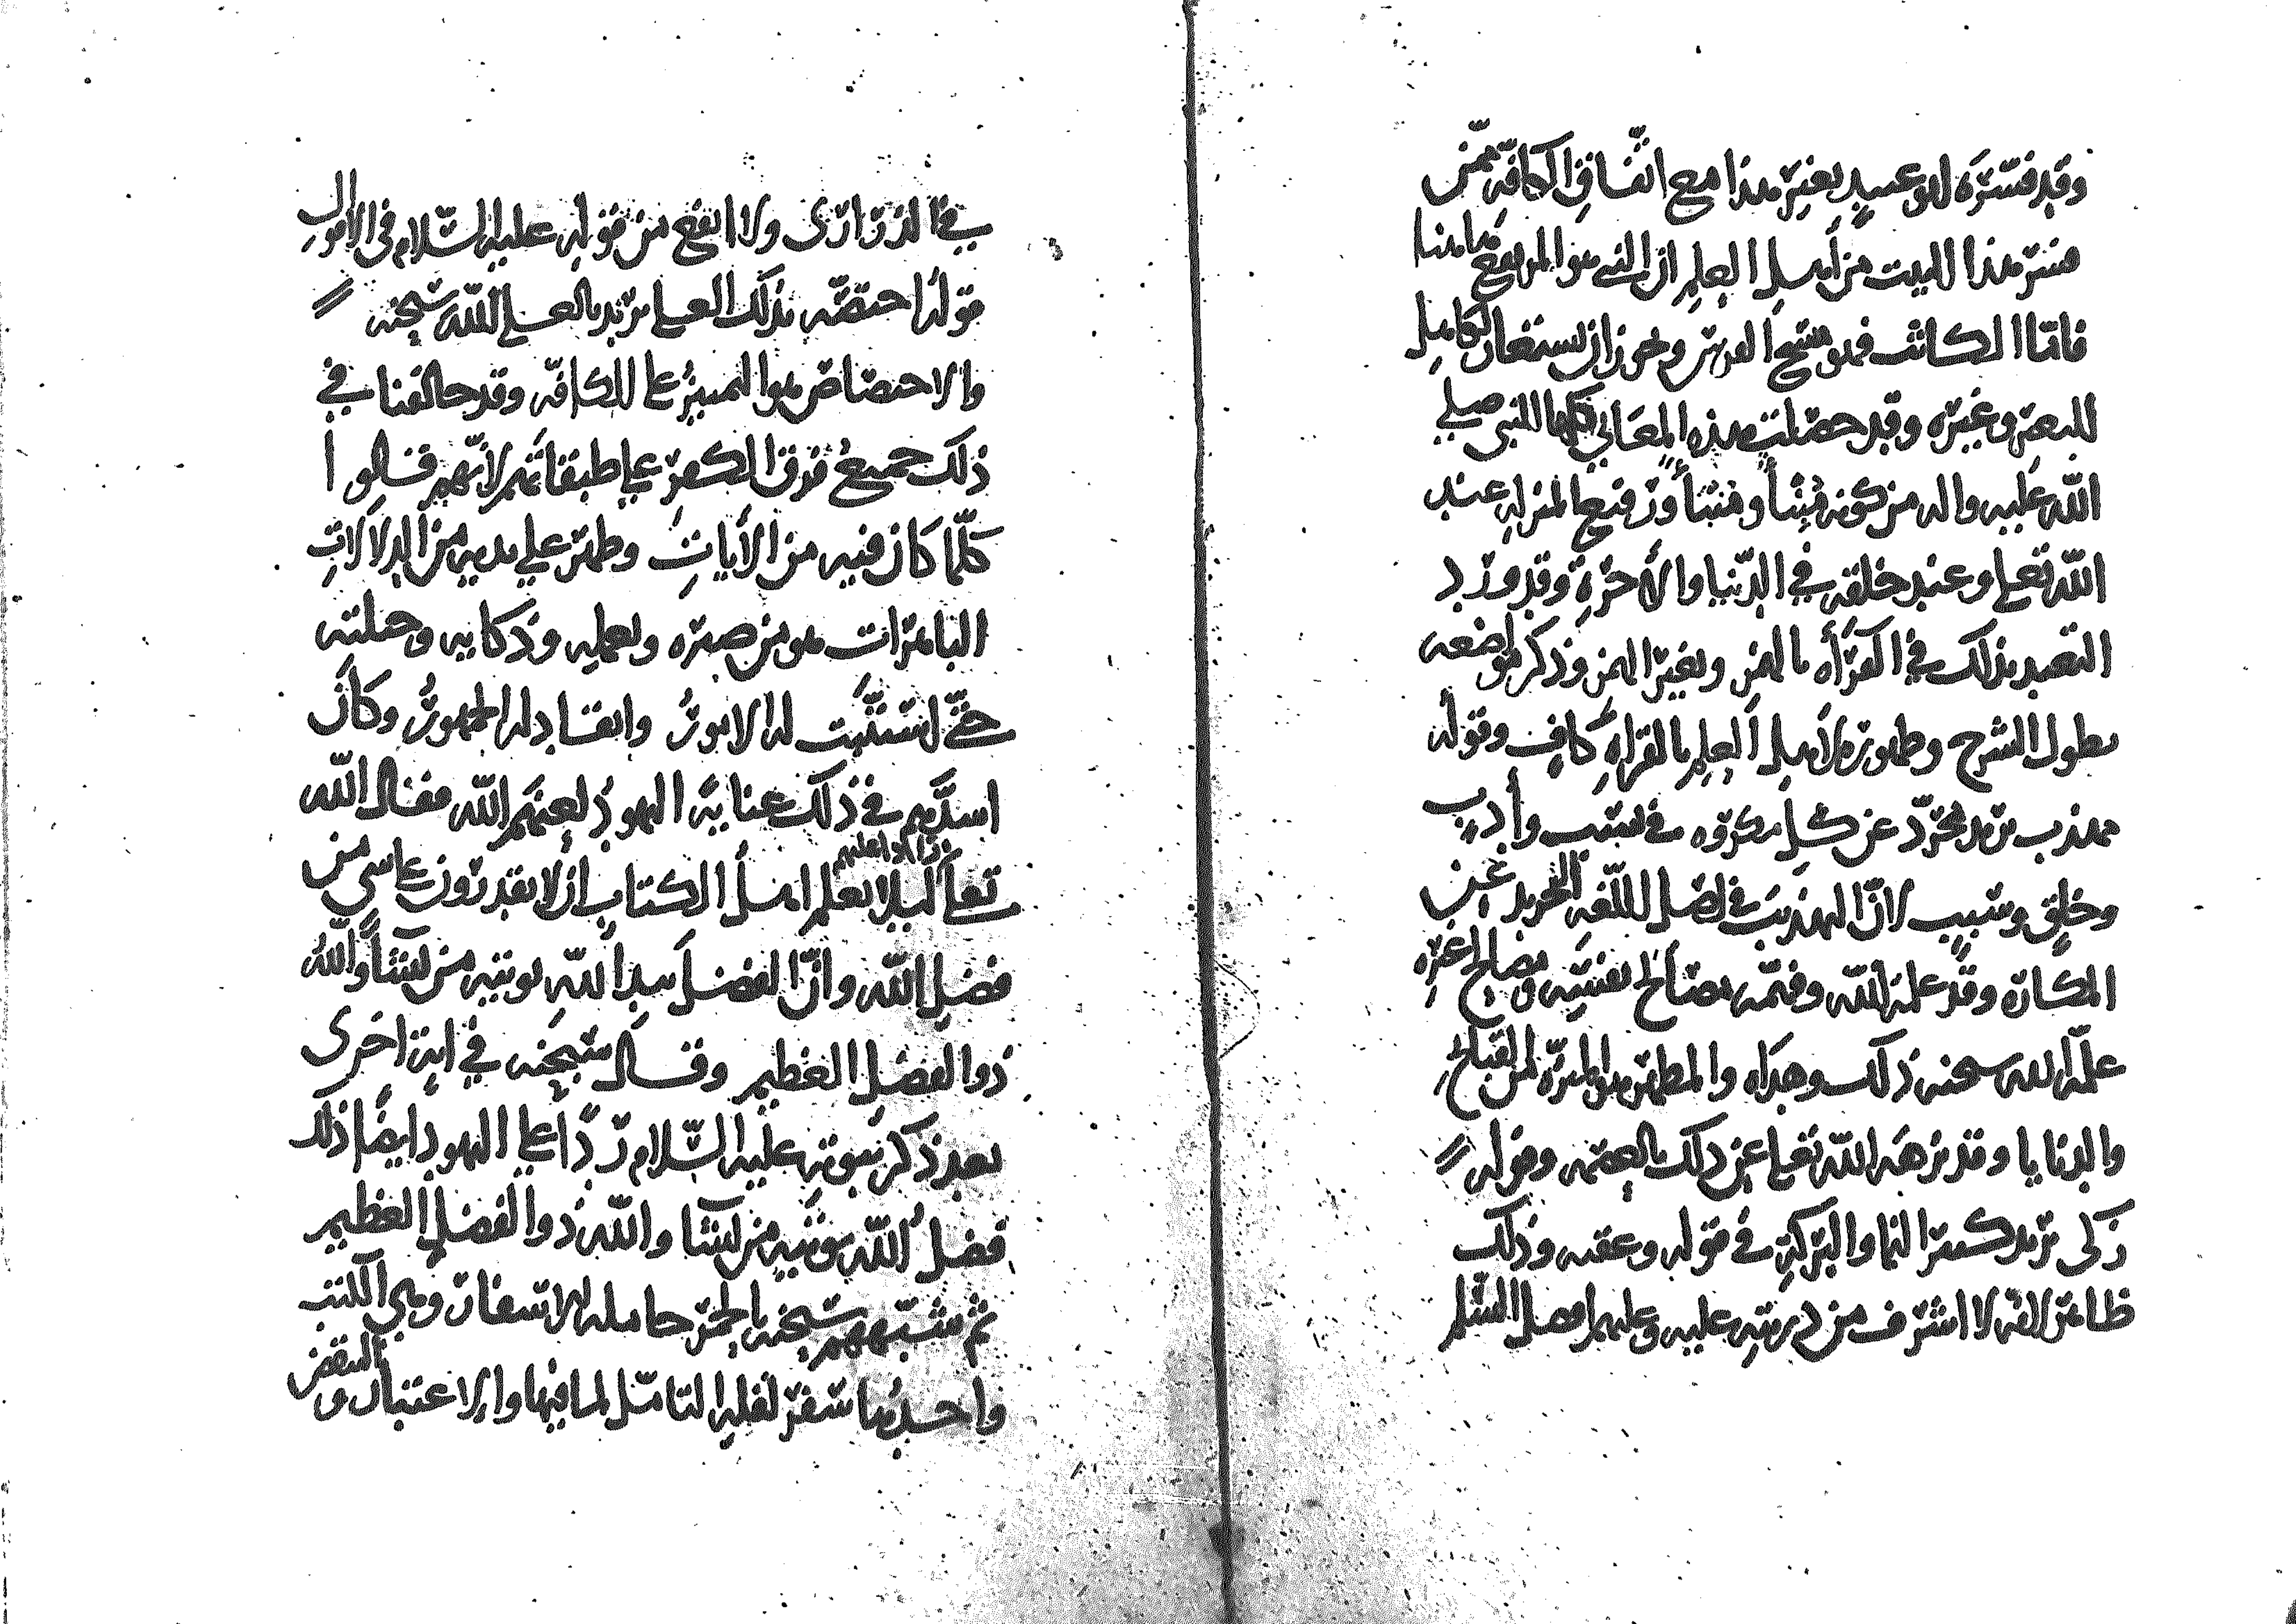 وقد فسّره ابو عبيد بغير هذا مع اتفاق الكافة ممن
فسر هذا البيت من أهل العلم ان النبي هو المرتفع هاهنا
فاما الكاثب فهو منسج الفرس وجوز ان يستعار لكاهل
البعير وغيره وقد حصلت هذه المعاني كلها للنبي صلى
الله عليه واله من كونه نبيئاً ومنبئاً ورفيع المنزله عند
الله تعلى وعند خلقه في الدنيا والأخرة وقد ورد
التعبد بذلك في القرأه بالهمز وبغير الهمز وذكر مواضعه
يطول الشرح وظهوره لأهل العلم بالقراه كاف وقوله
مهذب يريد مجرّد عن كل مكروه في نسب وأدب
وخلق وسبب لانّ التهذيب في اصل اللغه التجريد عن
المكاره وقد علمه الله وفهمه مصالح نفسه ومصالح غيره
علّمه الله سبحنه ذلك وهداه والمطهر هو المبرّه من القبائح
والدنايا وقد نزهه الله تعلى عن ذلك بالعصمه وقوله
زكى يريد كثير النما والبركة في قوله وعقبه وذلك
ظاهر لانه لا اشرف من ذريته عليه وعليهم افضل السلم
في الذراري ولا انفع من قوله عليه السّلام في الاقوال
قوله اختصّه بذلك العلي يريد بالعلي الله سبحنه
والاختصاص هو التمييز على الكافّه وقد خالفنا في
ذلك جميع فرق الكفر على طبقاتهم لأنّهم قالوا
كلّما كان فيه من الأيات وظهر على يديه من الدلالات
الباهرات هو من صبره وتعمله وذكايه وحيلته
حتّى استتبت له الامور وانقاد له الجمهور وكان
اشدّهم في ذلك عنايةً اليهود لعنهم الله فقال الله
تعالى رادا عليهم ليلا يعلم اهل الكتاب ان لا يقدرون على شي من
فضل الله وانّ الفضل بيد الله يوتيه من يشأ والله
ذوا لفضل العظيم وقال سبحنه في اية اخرى
بعد ذكر نبوته عليه السّلام ردّاً على اليهود ايضاً ذلك
فضل الله يوتيه من يشا والله ذوا لفضل العظيم
ثم شبّههم سبحنه بالحمر حامله الاسفار وهي الكتب
واحدها سفر لقلة التامّل لما فيها والاعتبار والتفكر